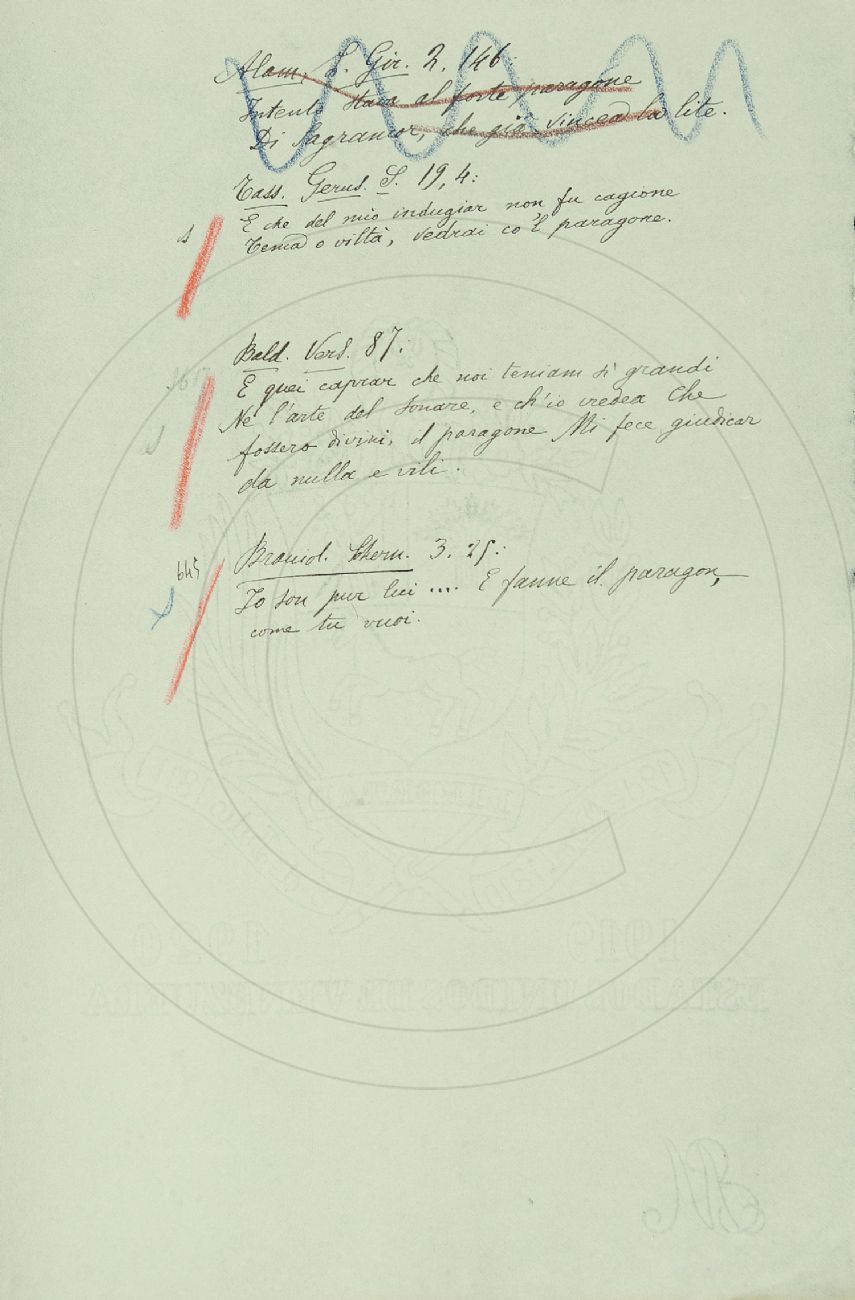 Alam. S. Gir. 2. 146
Intento stava al forte paragone
Di Sagramor, che già vincea la lite.
Tass. Gerus. S. 19, 4:
E che del mio indugiar non fu cagione
s
Tema o viltà, vedrai co 'l paragone.
Bald. Vers. 87:
E quei caprar che noi teniam sì grandi
Ne l'arte del sonare, e ch'io credea Che
fossero divini, il paragone Mi fece giudicar
da nulla e vili.
645
Io son pur lui .... E fanne il paragon,
come tu vuoi.
1920 1919
ESTADOS UNIDOS DE VENEZUELA